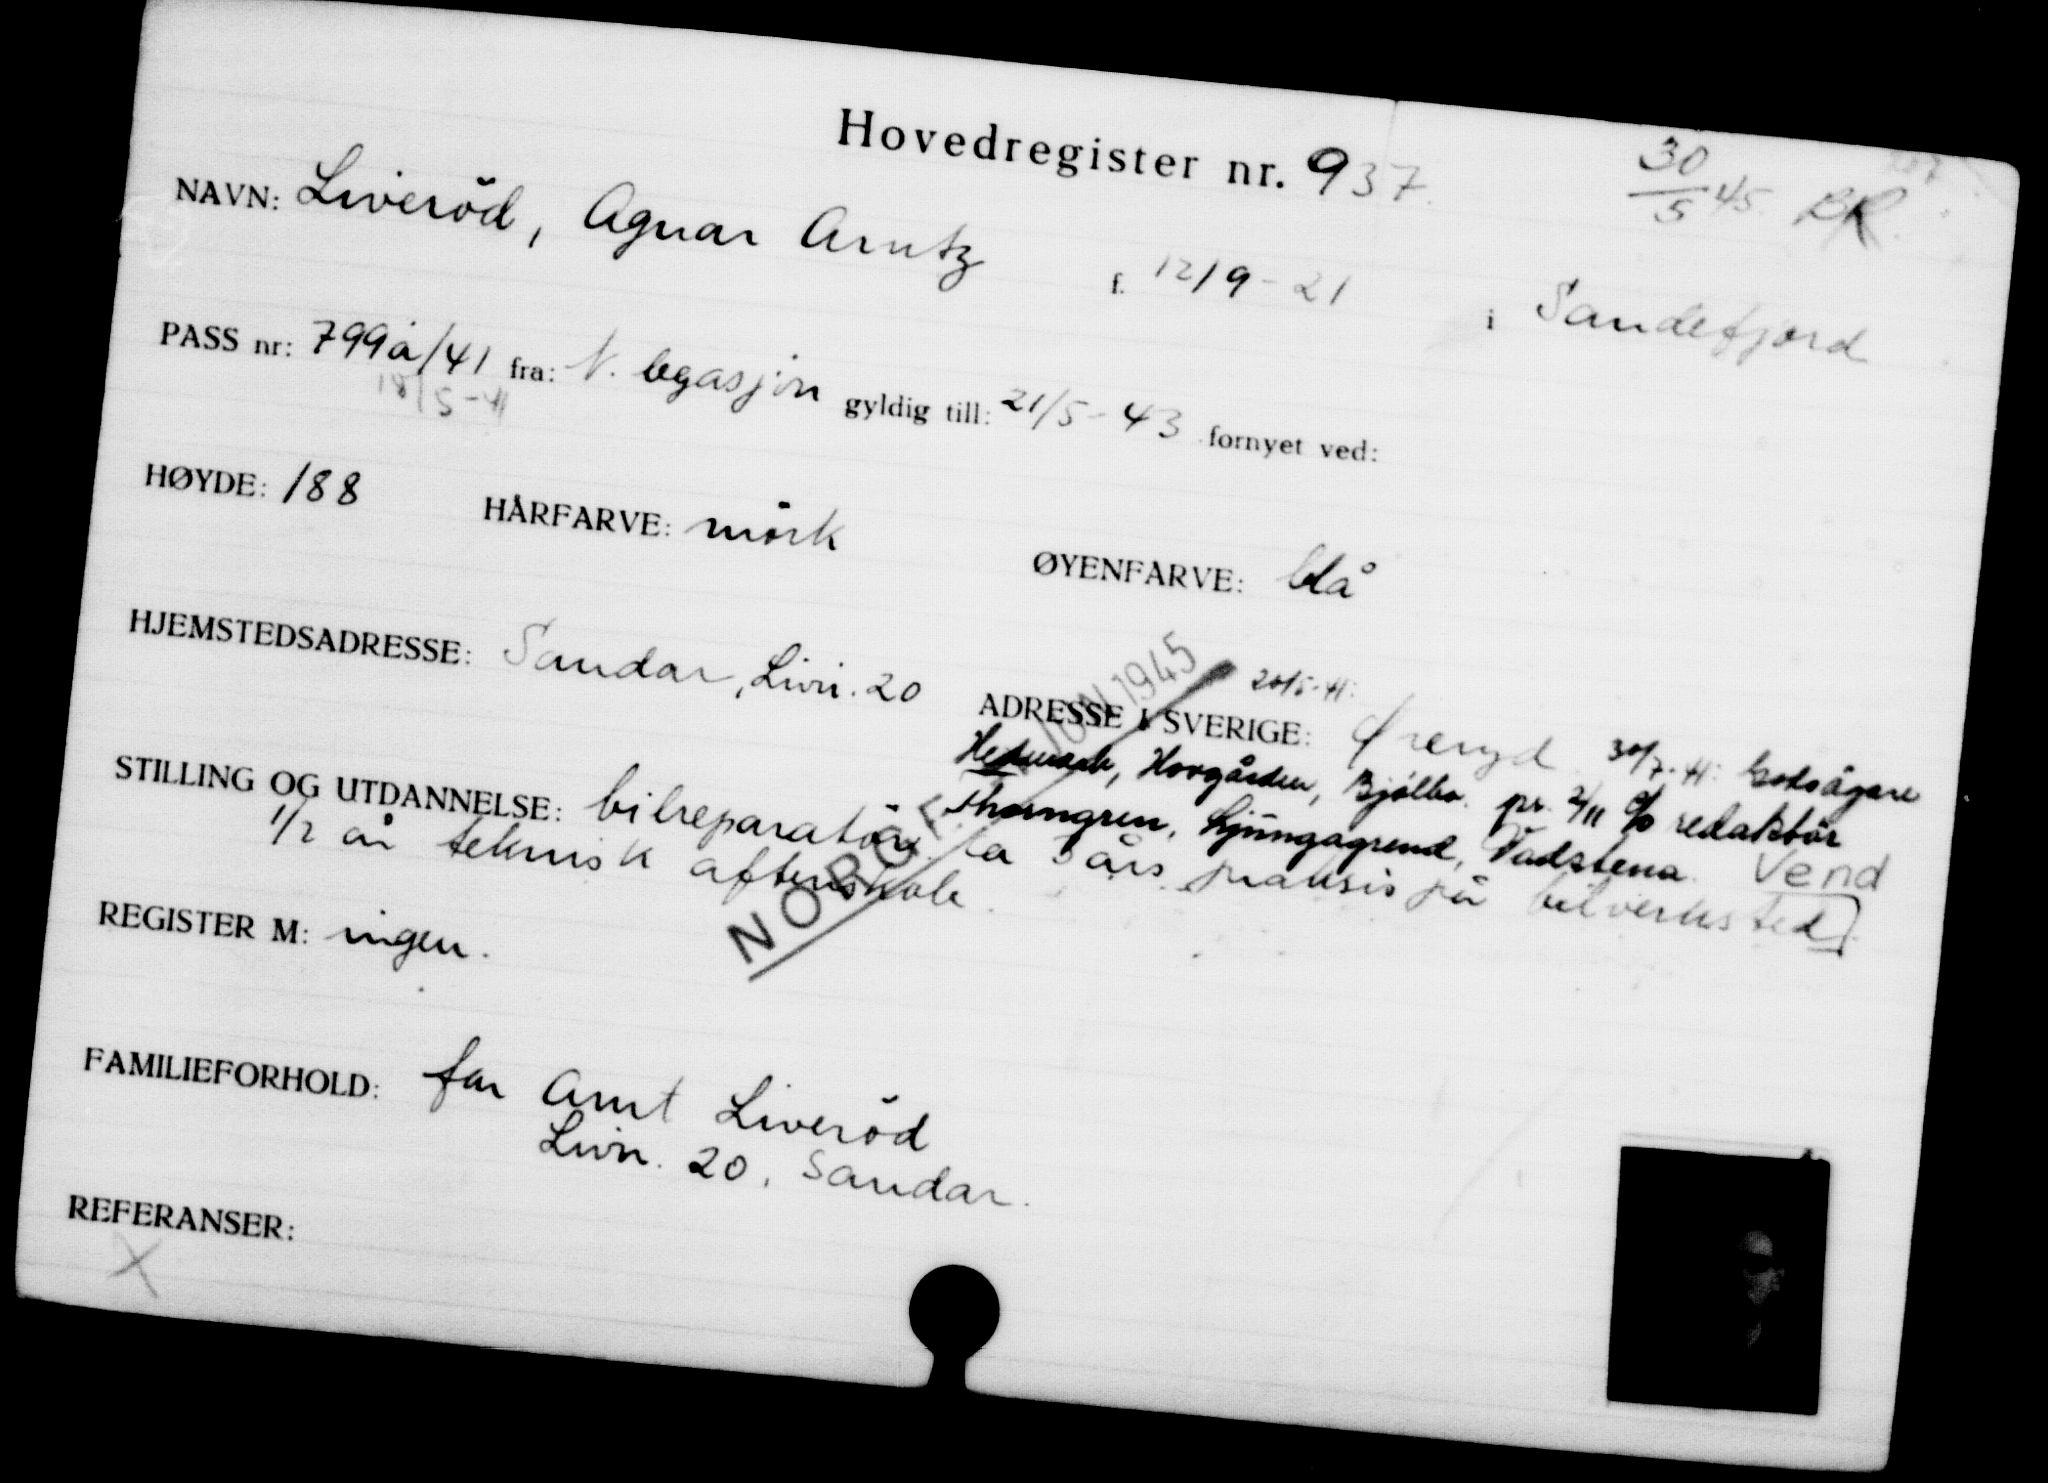 Hovedregister nr. 937.
30/5 45. BR
NAVN: Liveröd, Agnar Arntz f. 12/9-21 i Sandefjord
PASS nr: 799a/41 fra: N. legasjon gyldig till: 21/5-43 fornyet ved:
18/5-41
HØYDE: 188 HÅRFARVE: mörk ØYENFARVE: blå
HJEMSTEDSADRESSE: Sandar, Livn. 20
JUN 1945
20/5-41:
ADRESSE I SVERIGE: Öreryd. 30/7-41: Godsägare
Hedmark, Hovgården, Bjälbo. pr. 2/11 c/o redaktör
Thorngren, Ljungagrend, Vadstena. Vend
STILLING OG UTDANNELSE: bilreparatör. ca 5 års praksis på bilverksted.
1/2 år teknisk aftenskole.
NORGE
REGISTER M: ingen.
FAMILIEFORHOLD: far Arnt Liveröd
Livn. 20, Sandar.
REFERANSER:
X